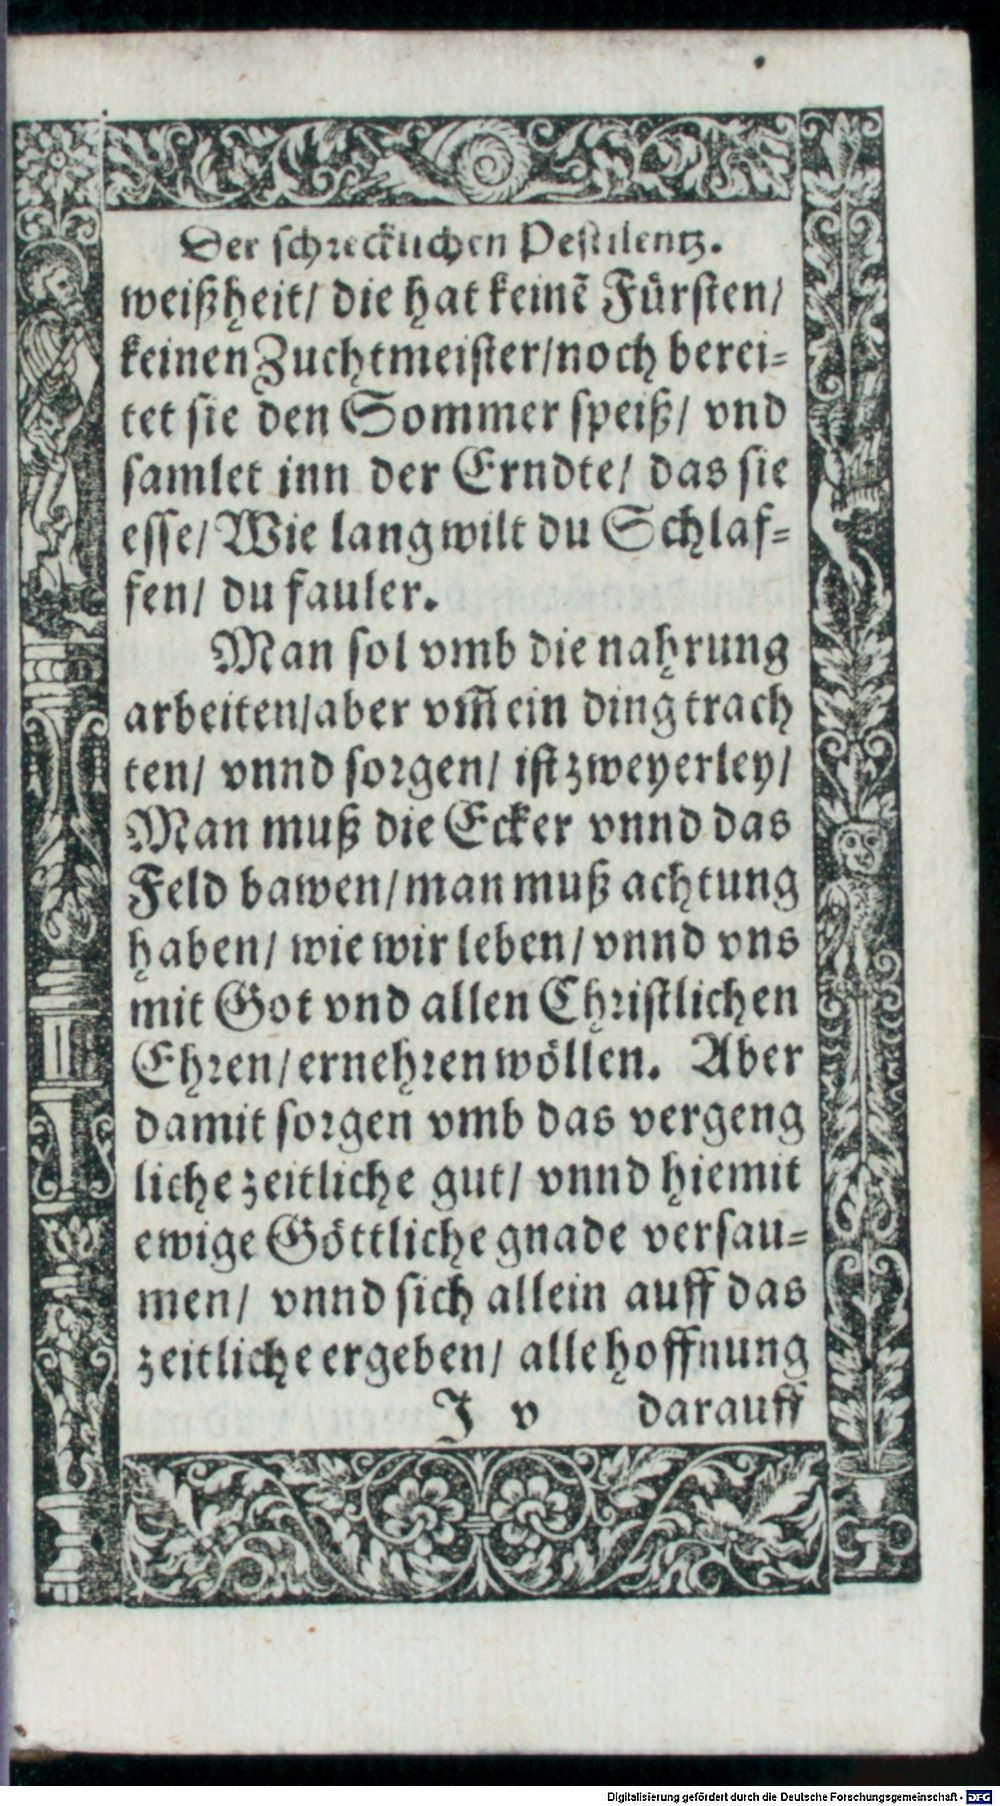 Der schrecklichen Pestilentz.
weißheit/ die hat keinẽ Fürsten/
keinen Zuchtmeister/noch berei-
tet sie den Sommer speiß/ vnd
samlet inn der Erndte/ das sie
esse/ Wie lang wilt du Schlaf-
fen/ du fauler.
Man sol vmb die nahrung
arbeiten/aber vm̃ ein ding trach
ten/ vnnd sorgen/ ist zweyerley/
Man muß die Ecker vnnd das
Feld bawen/man muß achtung
haben/ wie wir leben/ vnnd vns
mit Got vnd allen Christlichen
Ehren/ernehren wöllen. Aber
damit sorgen vmb das vergeng
liche zeitliche gut/ vnnd hiemit
ewige Göttliche gnade versau-
men/ vnnd sich allein auff das
zeitliche ergeben/ alle hoffnung
J v darauff
Digitalisierung gefördert durch die Deutsche Forschungsgemeinschaft - DFG